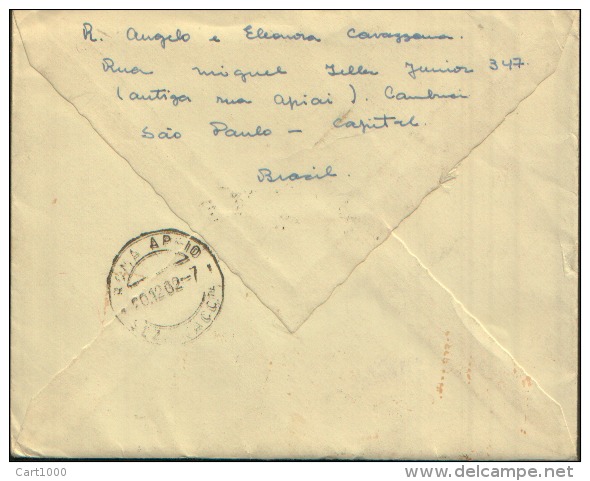 R. Angelo e Eleonora Cavazzana.
Rua Miguel Telles Junior 347.
(antiga rua Apiai). Cambuci
São Paulo - Capital.
Brasil.
ROMA APPIO
20.12.62-7
RACC
Cart1000
www.delcampe.net